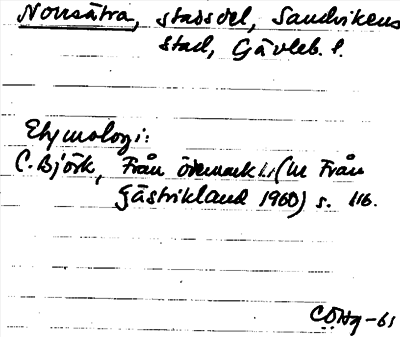 Norrsätra, stadsdel, Sandvikens
stad, Gävleb. l.
Etymologi:
C. Björk, Från ödemark i. (in Från
Gästrikland 1960) s. 116.
COHg-61